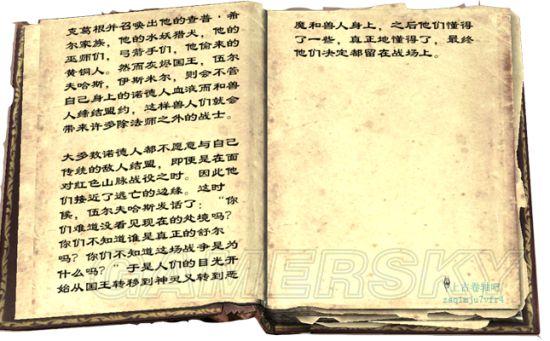 克葛根并召唤出他的查普·希
尔家族，他的水妖猎犬，他的
巫师们，弓箭手们，他偷来的
黄铜人。然而灰烬国王，伍尔
夫哈斯，伊斯米尔，则会不管
自己身上的诺德人血液而和兽
人缔结盟约，这样兽人们就会
带来许多除法师之外的战士。
大多数诺德人都不愿意与自己
传统的敌人结盟，即便是在面
对红色山脉战役之时。因此他
们接近了逃亡的边缘。这时
候，伍尔夫哈斯发话了：“你
们难道没看见现在的处境吗？
你们不知道谁是真正的舒尔
吗？你们不知道这场战争是为
什么吗？”于是人们的目光开
始从国王转移到神灵又转到恶
魔和兽人身上，之后他们懂得
了一些，真正地懂得了，最终
他们决定都留在战场上。
GAMERSKY
上古卷轴吧
zsq1mju7vfr4